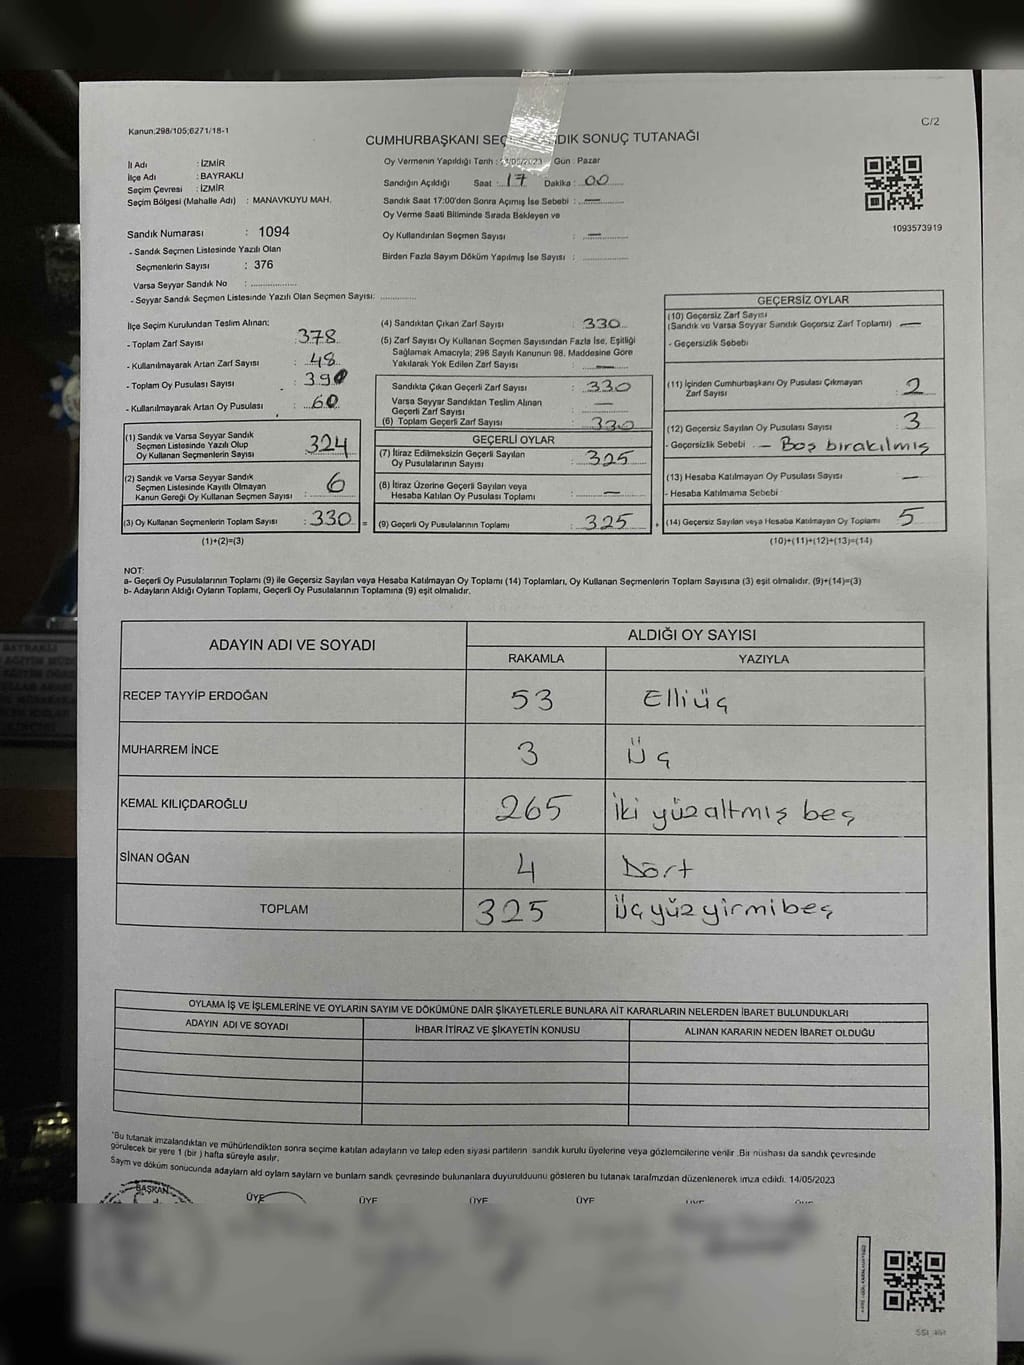 Kanun:298/105;6271/18-1
C/2
CUMHURBAŞKANI SONUÇ TUTANAĞI
İl Adı : İZMİR
İlçe Adı : BAYRAKLI
Seçim Çevresi : İZMİR
Seçim Bölgesi (Mahalle Adı) : MANAVKUYU MAH.
Oy Vermenin Yapıldığı Tarih : /05/2023 Gün : Pazar
Sandığın Açıldığı Saat : 17 Dakika : 00
Sandık Saat 17:00'den Sonra Açımış İse Sebebi : —
Oy Verme Saati Bitiminde Sırada Bekleyen ve
Oy Kullandırılan Seçmen Sayısı : —
Birden Fazla Sayım Döküm Yapılmış İse Sayısı :
1093573919
Sandık Numarası : 1094
- Sandık Seçmen Listesinde Yazılı Olan
Seçmenlerin Sayısı : 376
Varsa Seyyar Sandık No :
- Seyyar Sandık Seçmen Listesinde Yazılı Olan Seçmen Sayısı:
İlçe Seçim Kurulundan Teslim Alınan;
- Toplam Zarf Sayısı : 378
- Kullanılmayarak Artan Zarf Sayısı : 48
- Toplam Oy Pusulası Sayısı : 390
- Kullanılmayarak Artan Oy Pusulası : 60
(1) Sandık ve Varsa Seyyar Sandık
Seçmen Listesinde Yazılı Olup
Oy Kullanan Seçmenlerin Sayısı : 324
(2) Sandık ve Varsa Seyyar Sandık
Seçmen Listesinde Kayıtlı Olmayan
Kanun Gereği Oy Kullanan Seçmen Sayısı : 6
(3) Oy Kullanan Seçmenlerin Toplam Sayısı : 330 =
(1)+(2)=(3)
(4) Sandıktan Çıkan Zarf Sayısı : 330
(5) Zarf Sayısı Oy Kullanan Seçmen Sayısından Fazla İse, Eşitliği
Sağlamak Amacıyla; 298 Sayılı Kanunun 98. Maddesine Göre
Yakılarak Yok Edilen Zarf Sayısı : —
Sandıkta Çıkan Geçerli Zarf Sayısı : 330
Varsa Seyyar Sandıktan Teslim Alınan
Geçerli Zarf Sayısı : —
(6) Toplam Geçerli Zarf Sayısı : 330
GEÇERLİ OYLAR
(7) İtiraz Edilmeksizin Geçerli Sayılan
Oy Pusulalarının Sayısı : 325
(8) İtiraz Üzerine Geçerli Sayılan veya
Hesaba Katılan Oy Pusulası Toplamı : —
(9) Geçerli Oy Pusulalarının Toplamı : 325 +
GEÇERSİZ OYLAR
(10) Geçersiz Zarf Sayısı
(Sandık ve Varsa Seyyar Sandık Geçersiz Zarf Toplamı) —
- Geçersizlik Sebebi
(11) İçinden Cumhurbaşkanı Oy Pusulası Çıkmayan
Zarf Sayısı 2
(12) Geçersiz Sayılan Oy Pusulası Sayısı 3
- Geçersizlik Sebebi - Boş bırakılmış
(13) Hesaba Katılmayan Oy Pusulası Sayısı —
- Hesaba Katılmama Sebebi
(14) Geçersiz Sayılan veya Hesaba Katılmayan Oy Toplamı 5
(10)+(11)+(12)+(13)=(14)
NOT:
a- Geçerli Oy Pusulalarının Toplamı (9) ile Geçersiz Sayılan veya Hesaba Katılmayan Oy Toplamı (14) Toplamları, Oy Kullanan Seçmenlerin Toplam Sayısına (3) eşit olmalıdır. (9)+(14)=(3)
b- Adayların Aldığı Oyların Toplamı, Geçerli Oy Pusulalarının Toplamına (9) eşit olmalıdır.
ADAYIN ADI VE SOYADI
ALDIĞI OY SAYISI
RAKAMLA YAZIYLA
RECEP TAYYİP ERDOĞAN 53 Elliüç
MUHARREM İNCE 3 Üç
KEMAL KILIÇDAROĞLU 265 İki yüz altmış beş
SİNAN OĞAN 4 Dört
TOPLAM 325 Üç yüz yirmi beş
OYLAMA İŞ VE İŞLEMLERİNE VE OYLARIN SAYIM VE DÖKÜMÜNE DAİR ŞİKAYETLERLE BUNLARA AİT KARARLARIN NELERDEN İBARET BULUNDUKLARI
ADAYIN ADI VE SOYADI İHBAR İTİRAZ VE ŞİKAYETİN KONUSU ALINAN KARARIN NEDEN İBARET OLDUĞU
*Bu tutanak imzalandıktan ve mühürlendikten sonra seçime katılan adayların ve talep eden siyasi partilerin sandık kurulu üyelerine veya gözlemcilerine verilir .Bir nüshası da sandık çevresinde
görülecek bir yere 1 (bir ) hafta süreyle asılır.
Sayım ve döküm sonucunda adayların ald oyların sayları ve bunların sandk çevresinde bulunanlara duyurulduunu gösteren bu tutanak tarafmzdan düzenlenerek imza edildi. 14/05/2023
BAŞKAN ÜYE ÜYE ÜYE ÜYE